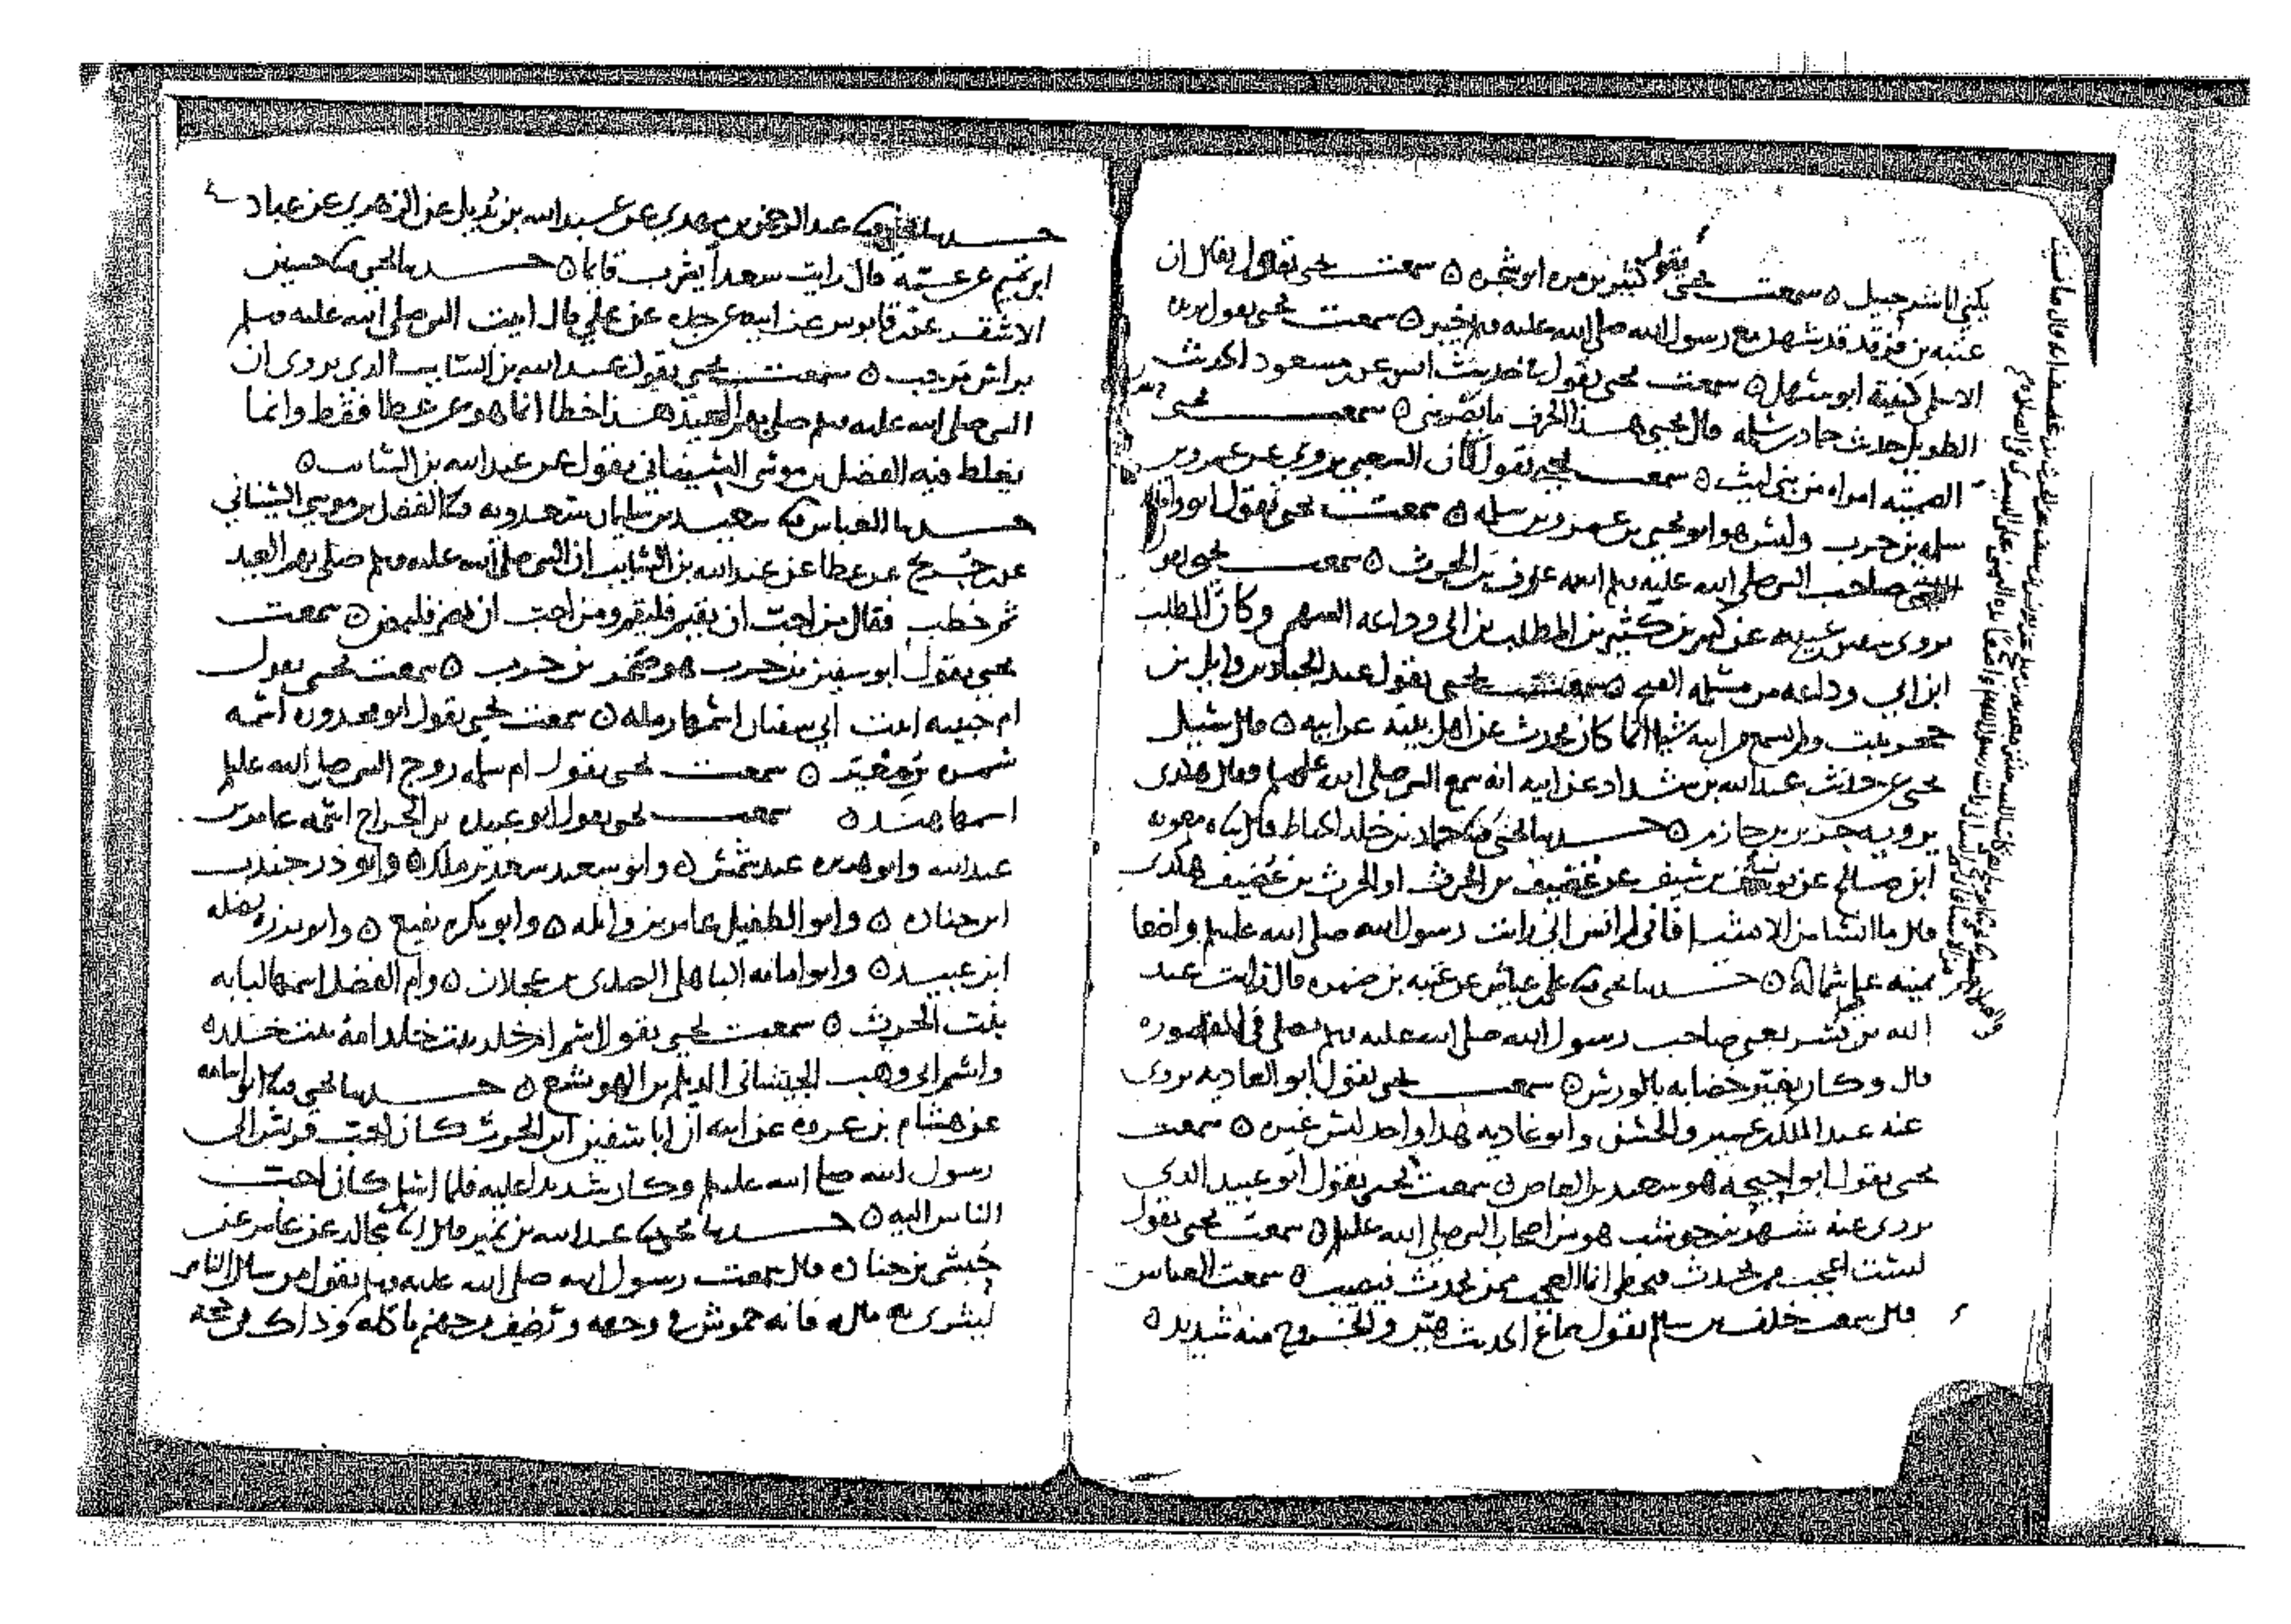 يكنى ابا شرحبيل ه سمعت يحيى يقول كثير بن مره ابو شجره ه سمعت يحيى يقول يقال ان
عتبه بن فرقد قد شهد مع رسول الله صلى الله عليه وسلم خيبر ه سمعت يحيى يقول بريده
الاسلمي كنيته ابو سهل ه سمعت يحيى يقول في حديث انس عن مسعود الحديث
الطويل حديث حماد بن سلمه قال يحيى هذا الحرف ما بصرني ه سمعت يحيى
الصميته امراه من بني ليث ه سمعت يحيى يقول كان الشعبي يروي عن عمرو بن
سلمه بن حرب وليس هو ابو يحيى بن عمرو بن سلمه ه سمعت يحيى يقول ابو واقد
الليثي صاحب النبي صلى الله عليه وسلم اسمه عوف بن الحرث ه سمعت يحيى يقول
يروي سفين بن عيينه عن كثير بن كثير بن المطلب بن ابي وداعه السهمي وكان المطلب
ابن ابي وداعه من مسلمه الفتح ه سمعت يحيى يقول عبد الجبار بن وايل بن
حجر ثبت ولم يسمع من ابيه شيا انما كان يحدث عن اهل بيته عن ابيه ه قال سئل
يحيى عن حديث عبد الله بن شداد عن ابيه انه سمع النبي صلى الله عليه وسلم فقال هكذى
يرويه جرير بن حازم ه حدثنا يحيى نا حماد بن خلد الخياط قال نا معويه
ابن صالح عن يونس بن سيف عن غضيف بن الحرث او الحرث بن غضيف هكذى
قال ما انسا من الاشيا فاني لم انس اني رايت رسول الله صلى الله عليه وسلم واضعا
يمينه على شماله ه حدثنا يحيى نا علي بن عياش عن عتبه بن ضمره قال رايت عبد
الله بن بسر يعني صاحب رسول الله صلى الله عليه وسلم يصلي في المقصوره
قال وكان يغير خضابه بالورس ه سمعت يحيى يقول ابو الغاديه يروي
عنه عبد الملك بن عمير والحسن وابو غاديه هذا واحد ليس غيره ه سمعت
يحيى يقول ابو احيحه هو سعيد بن العاص ه سمعت يحيى يقول ابو عبيد الذي
يروي عنه شهر بن حوشب هو من اصحاب النبي صلى الله عليه وسلم ه سمعت يحيى يقول
لست اعجب ممن يحدث فيخطي انما العجب ممن يحدث فيصيب ه سمعت العباس
قال سمعت خلف بن سالم يقول سماع الحديث هين والخروج منه شديد ه
حدثنا يحيى نا عبد الرحمن بن مهدي عن عبد الله بن بديل عن الزهري عن عباد
ابن تميم عن عمه قال رايت سعدا يشرب قايما ه حدثنا يحيى نا حسين
الاشقر عن قابوس عن ابيه عن جده عن علي قال اتيت النبي صلى الله عليه وسلم
براس مرحب ه سمعت يحيى يقول عبد الله بن السايب الذي يروي ان
النبي صلى الله عليه وسلم صلى بهم العيد هذا خطا انما هو عن عطا فقط وانما
يغلط فيه الفضل بن موسى السيناني يقول عن عبد الله بن السايب ه
حدثنا العباس نا سعيد بن سليمان سعدويه نا الفضل بن موسى السيناني
عن ابن جريج عن عطا عن عبد الله بن السايب ان النبي صلى الله عليه وسلم صلى بهم العيد
ثم خطب فقال من احب ان يقيم فليقم ومن احب ان يمض فليمض ه سمعت
يحيى يقول ابو سفين بن حرب هو صخر بن حرب ه سمعت يحيى يقول
ام حبيبه ابنت ابي سفيان اسمها رمله ه سمعت يحيى يقول ابو محذوره اسمه
سمره بن معير ه سمعت يحيى يقول ام سلمه زوج النبي صلى الله عليه وسلم
اسمها هند ه سمعت يحيى يقول ابو عبيده بن الجراح اسمه عامر بن
عبد الله وابو هريره عبد شمس ه وابو سعيد سعد بن ملك ه وابو ذر جندب
ابن جناده ه وابو الطفيل عامر بن واثله ه وابو بكره نفيع ه وابو برزه نضله
ابن عبيد ه وابو امامه الباهلي الصدي بن عجلان ه وام الفضل اسمها لبابه
بنت الحرث ه سمعت يحيى يقول اسم ام خلد بنت خلد امه بنت خلد ه
واسم ابي وهب الجيشاني الديلم بن الهوشع ه حدثنا يحيى نا ابو اسامه
عن هشام بن عروه عن ابيه ان ابا سفين ابن الحرث كان احب قريش الى
رسول الله صلى الله عليه وسلم وكان شديدا عليه فلما اسلم كان احب
الناس اليه ه حدثنا يحيى نا عبد الله بن نمير قال نا مجالد عن عامر عن
حبشي بن جناده قال سمعت رسول الله صلى الله عليه وسلم يقول من سال الناس
ليثري به ماله فانه خموش في وجهه ورضف من جهنم ياكله وذاك في حجه